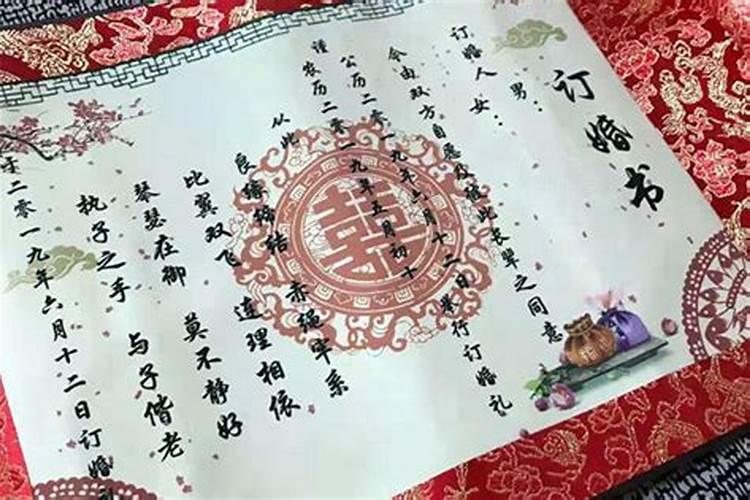 订婚书
男：
订婚人 女：
今由双方自愿及彼此长辈之同意
谨
公历二零一九年六月十二日举行订婚礼
农历二零一九年五月初十
从此
良缘缔结 赤绳牢系
比翼双飞 连理相依
琴瑟在御 莫不静好
执子之手 与子偕老
于二零一九年六月十二日订婚